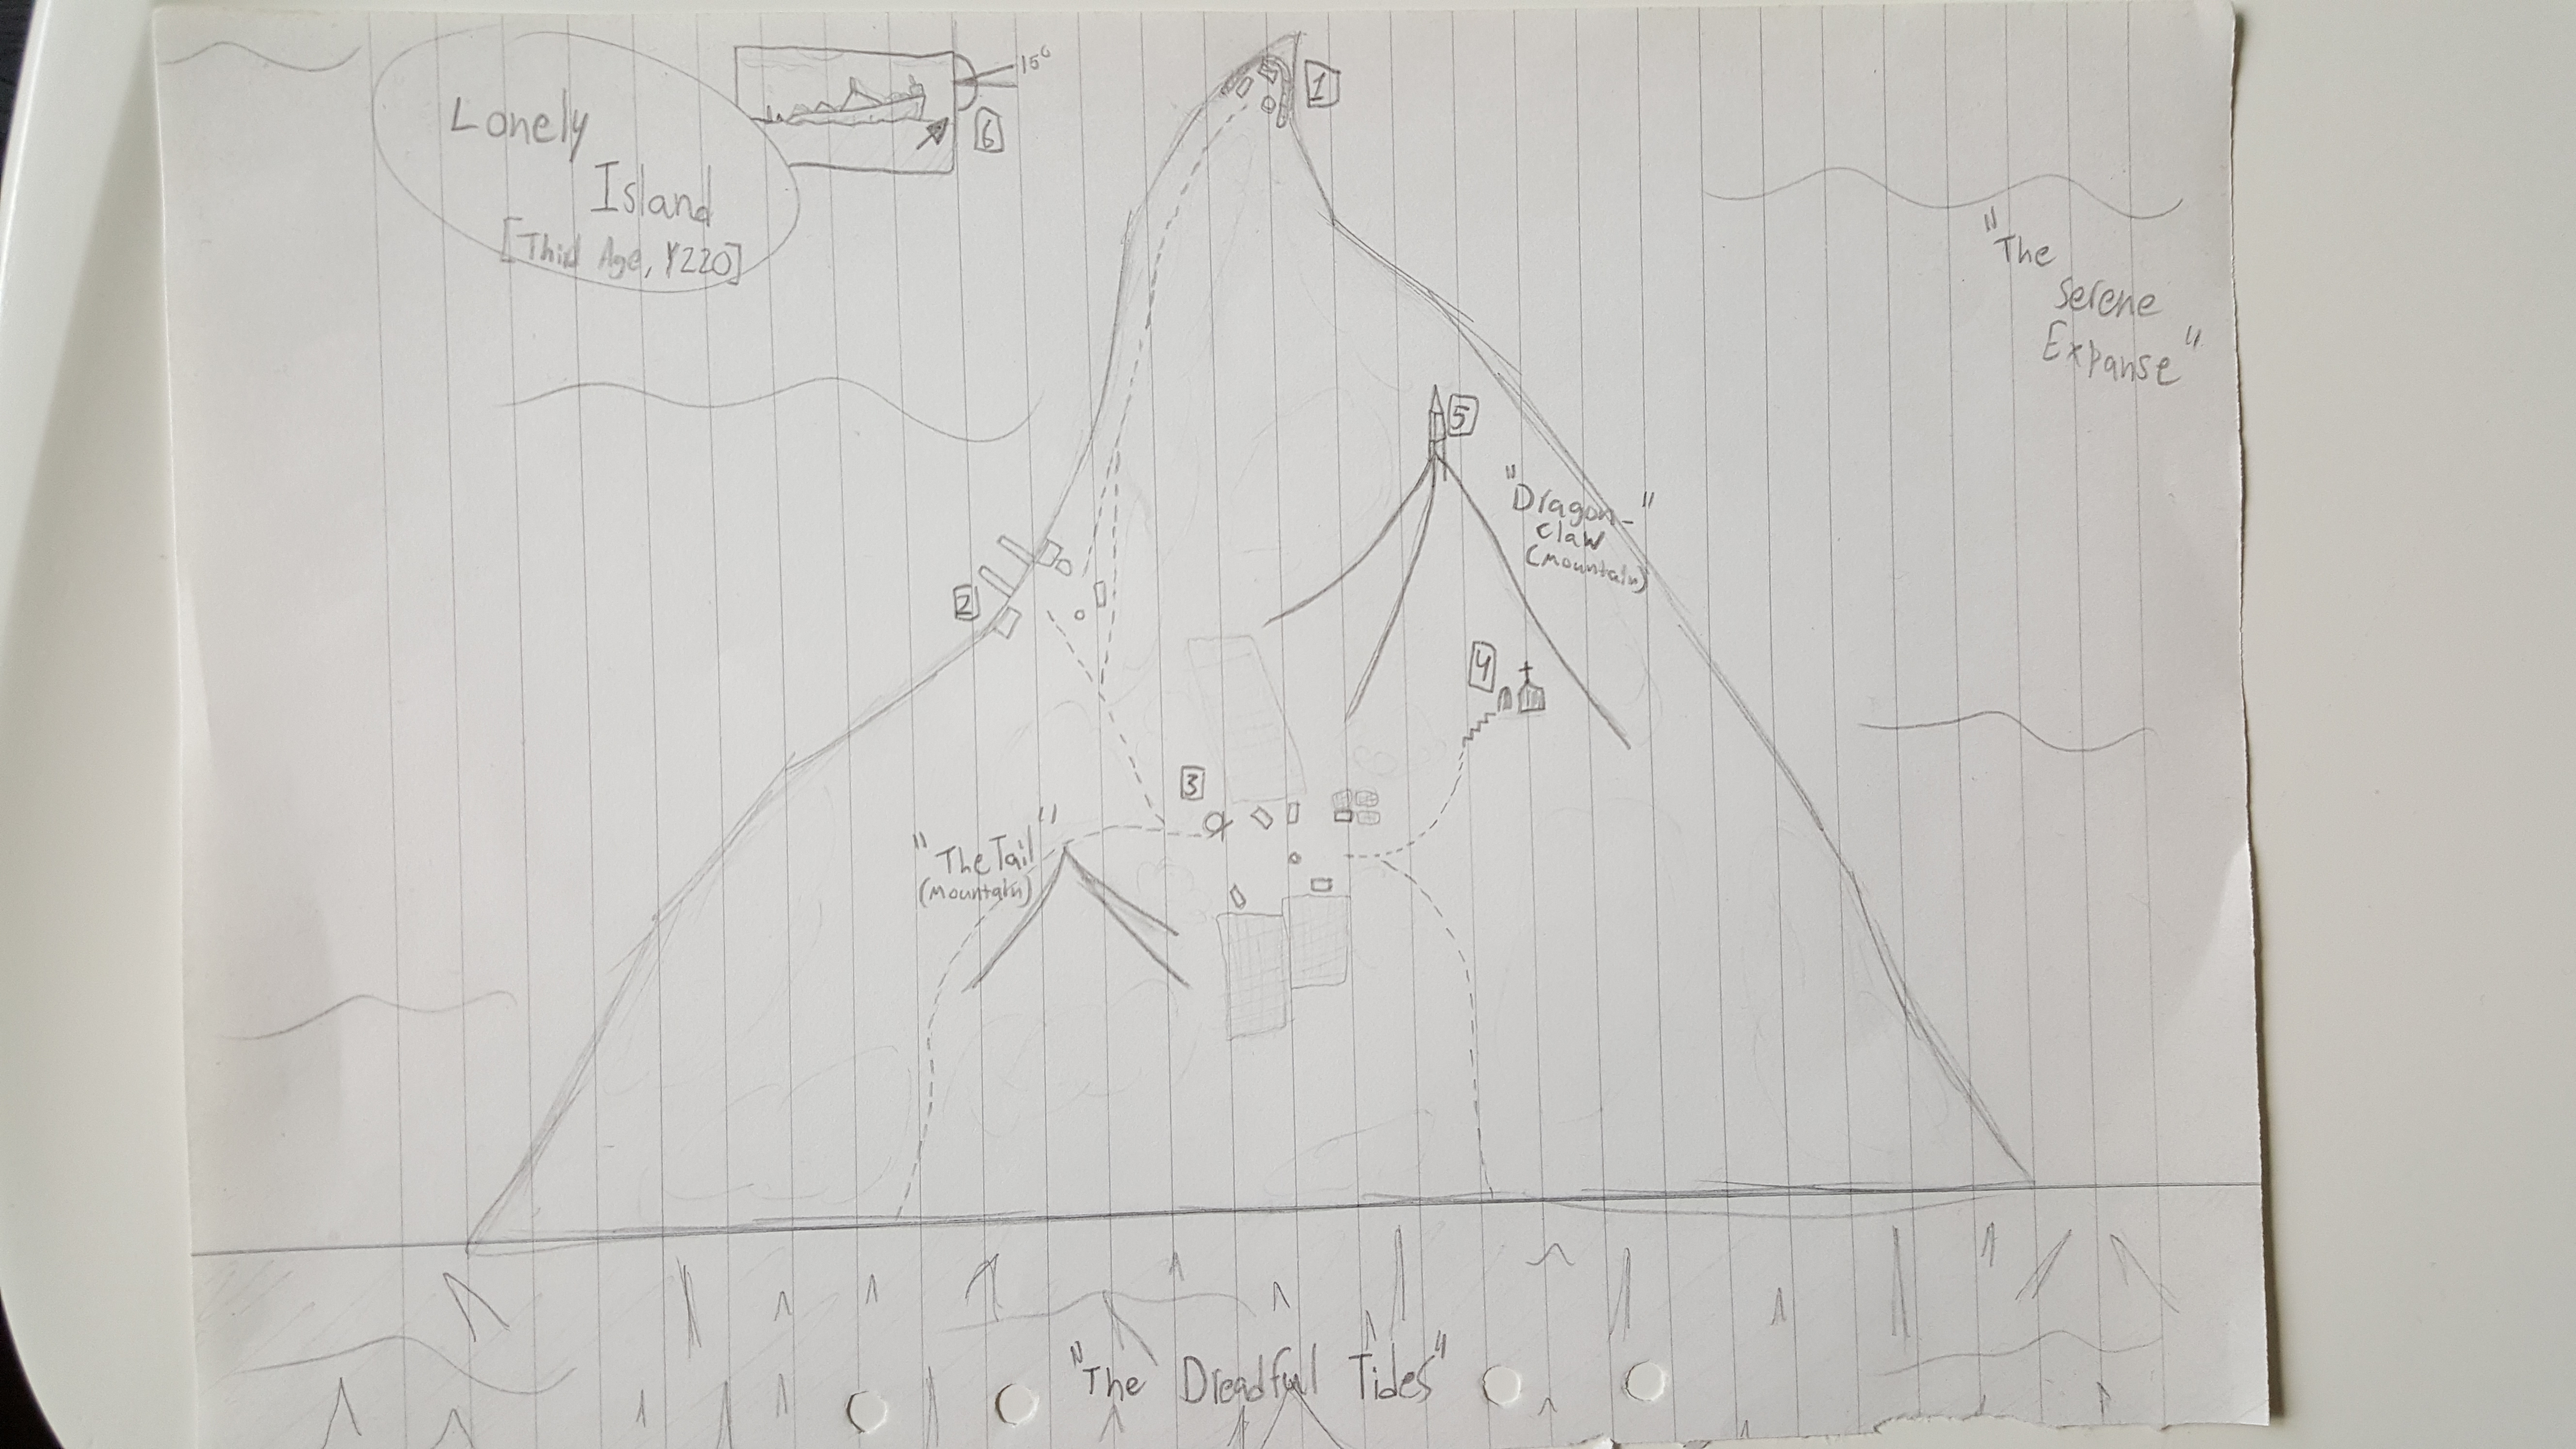 Lonely
Island
[Third Age, Y220]
15°
6
1
"The
Serene
Expanse"
5
"Dragon-"
Claw
(Mountain)
2
4
3
"The Tail"
(Mountain)
"The Dreadful Tides"